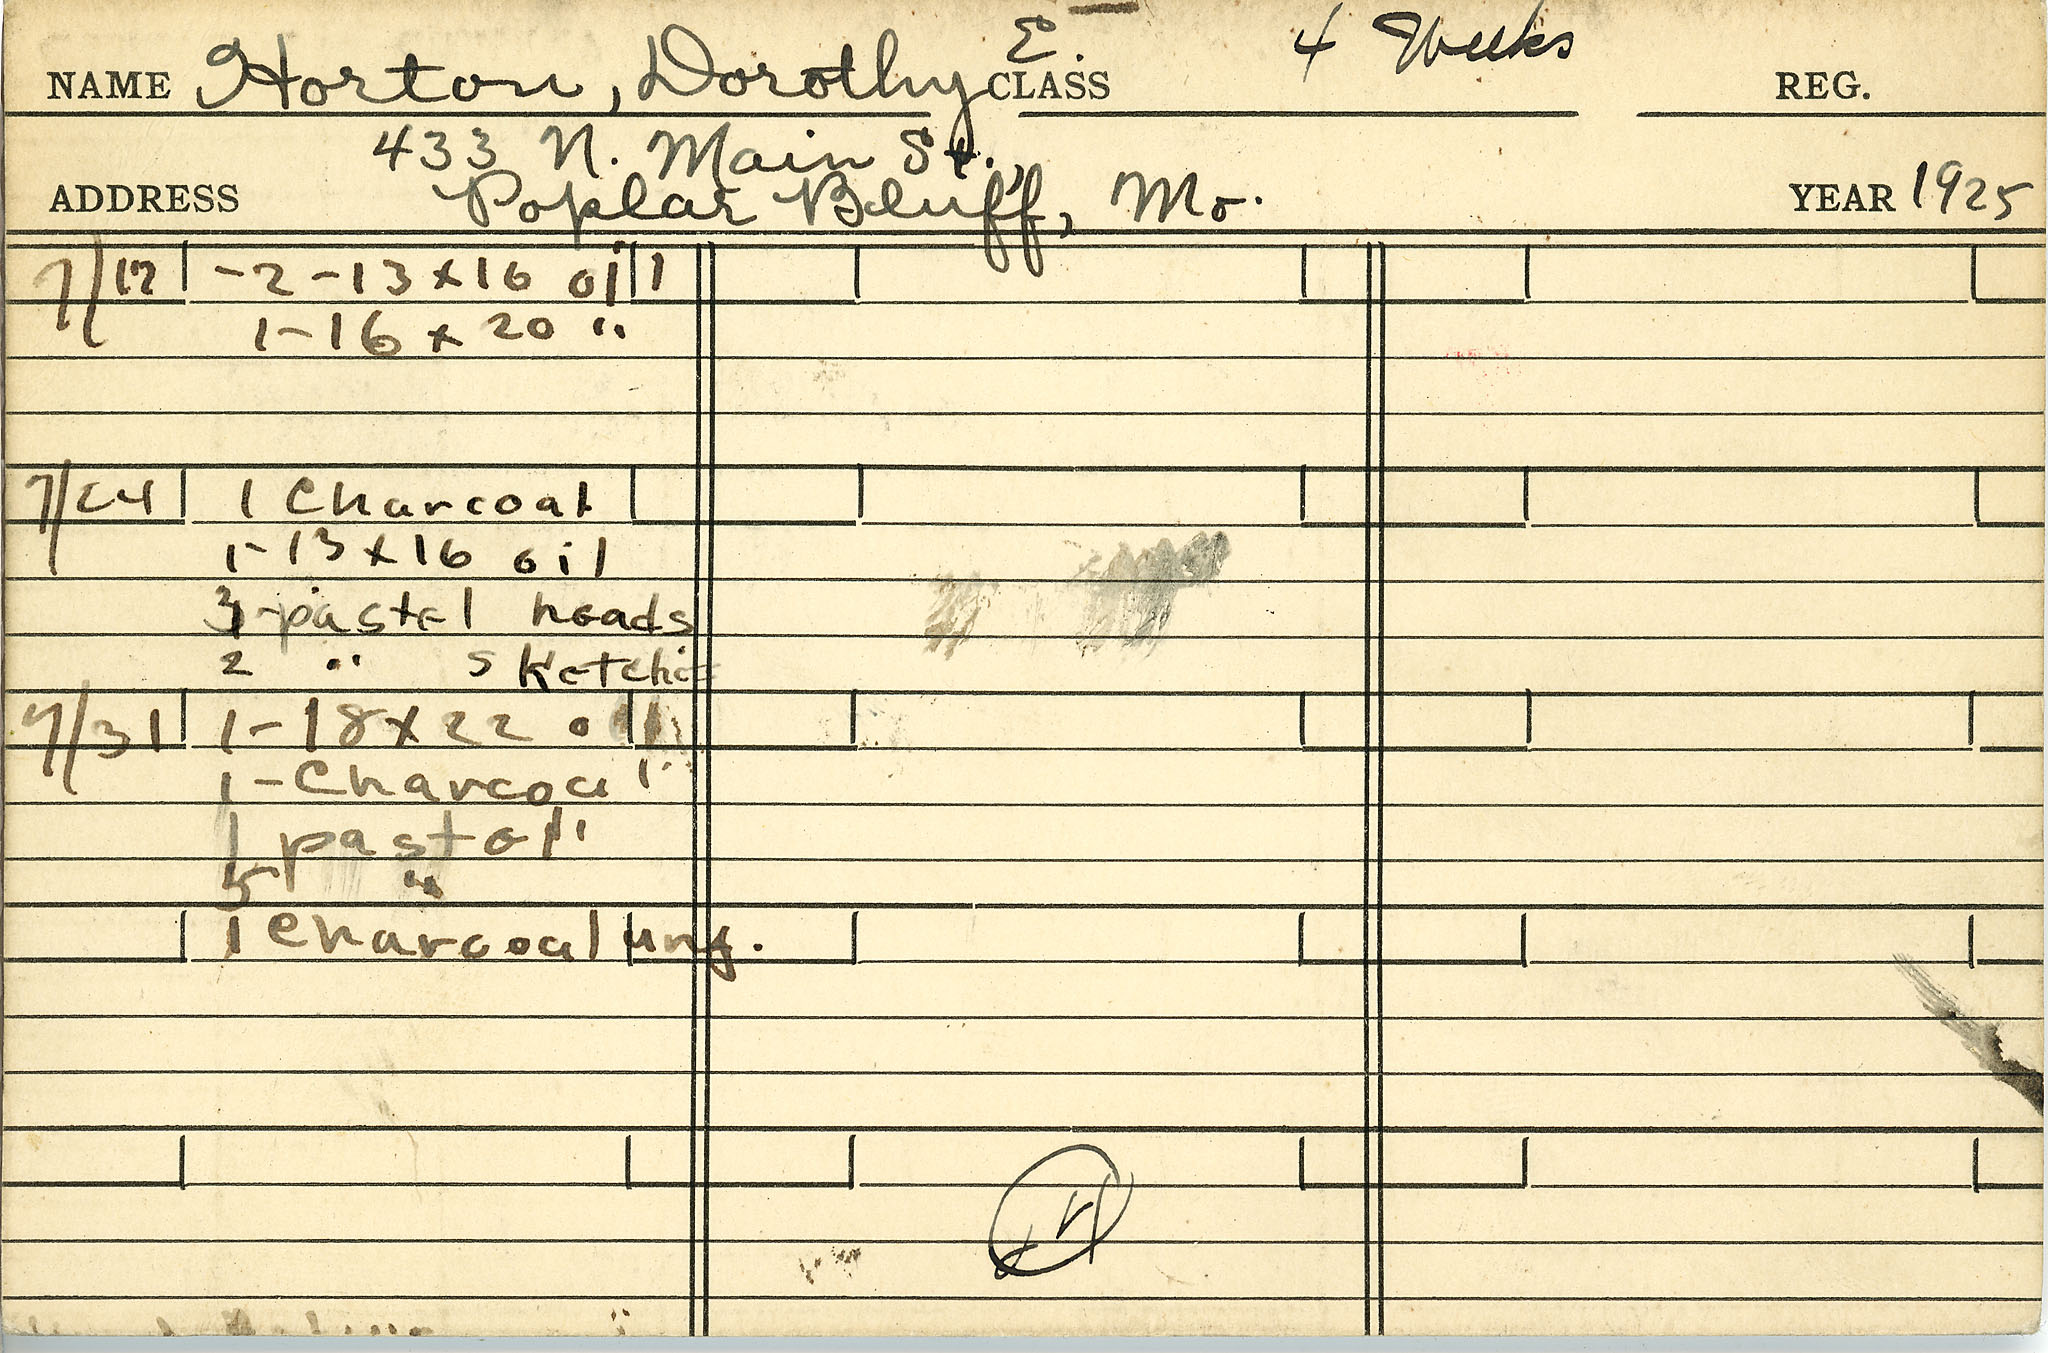 NAME Horton, Dorothy E. CLASS 4 Weeks REG.
433 N. Main St.,
ADDRESS Poplar Bluff, Mo. YEAR 1925
7/17 -2-13x16 oil
1-16x20 "
7/24 1 Charcoal
1-13x16 oil
3-pastel heads
2 " sketches
7/31 1-18x22 oil
1-Charcoal
1 pastel
5 "
1 Charcoal unf.